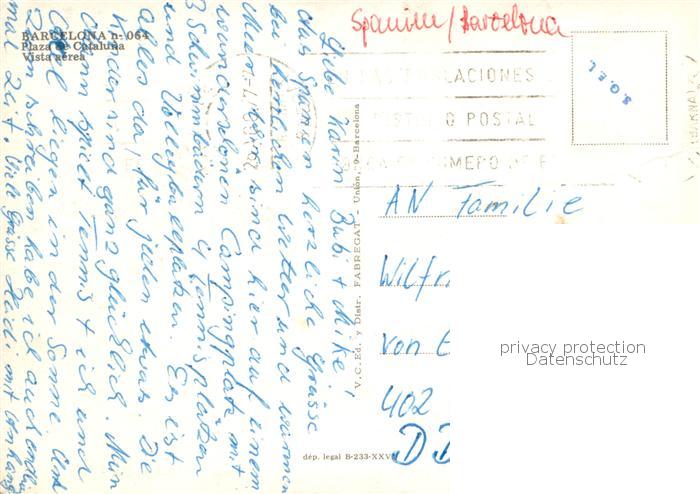 Spanien/Barcelona
BARCELONA n.º 064
Plaza de Cataluña
Vista aérea
POBLACIONES
DISTRITO POSTAL
NUMERO DE
S.G.E.L.
Liebe Karin, Bubi + Mike,
Aus Spanien herzliche Grüsse
bei herrlichem Wetter und warmem
Meer. Wir sind hier auf einem
wunderschönen Campingplatz mit
3 Schwimmbädern, 4 Tennisplätzen
und Volleyballplätzen. Es ist
alles da, für jeden etwas. Die
Kinder sind ganz glücklich. Mein
Mann spielt Tennis + ich und
liegen in der Sonne. Und
zum schreiben habe ich auch endlich
mal Zeit. Viele Grüsse Heidi mit Anhang
V.C. Ed. y Distr. FABREGAT - Unión, 9 - Barcelona
dép. legal B-233-XXV
AN Familie
Wilfr
von E
402
privacy protection
Datenschutz